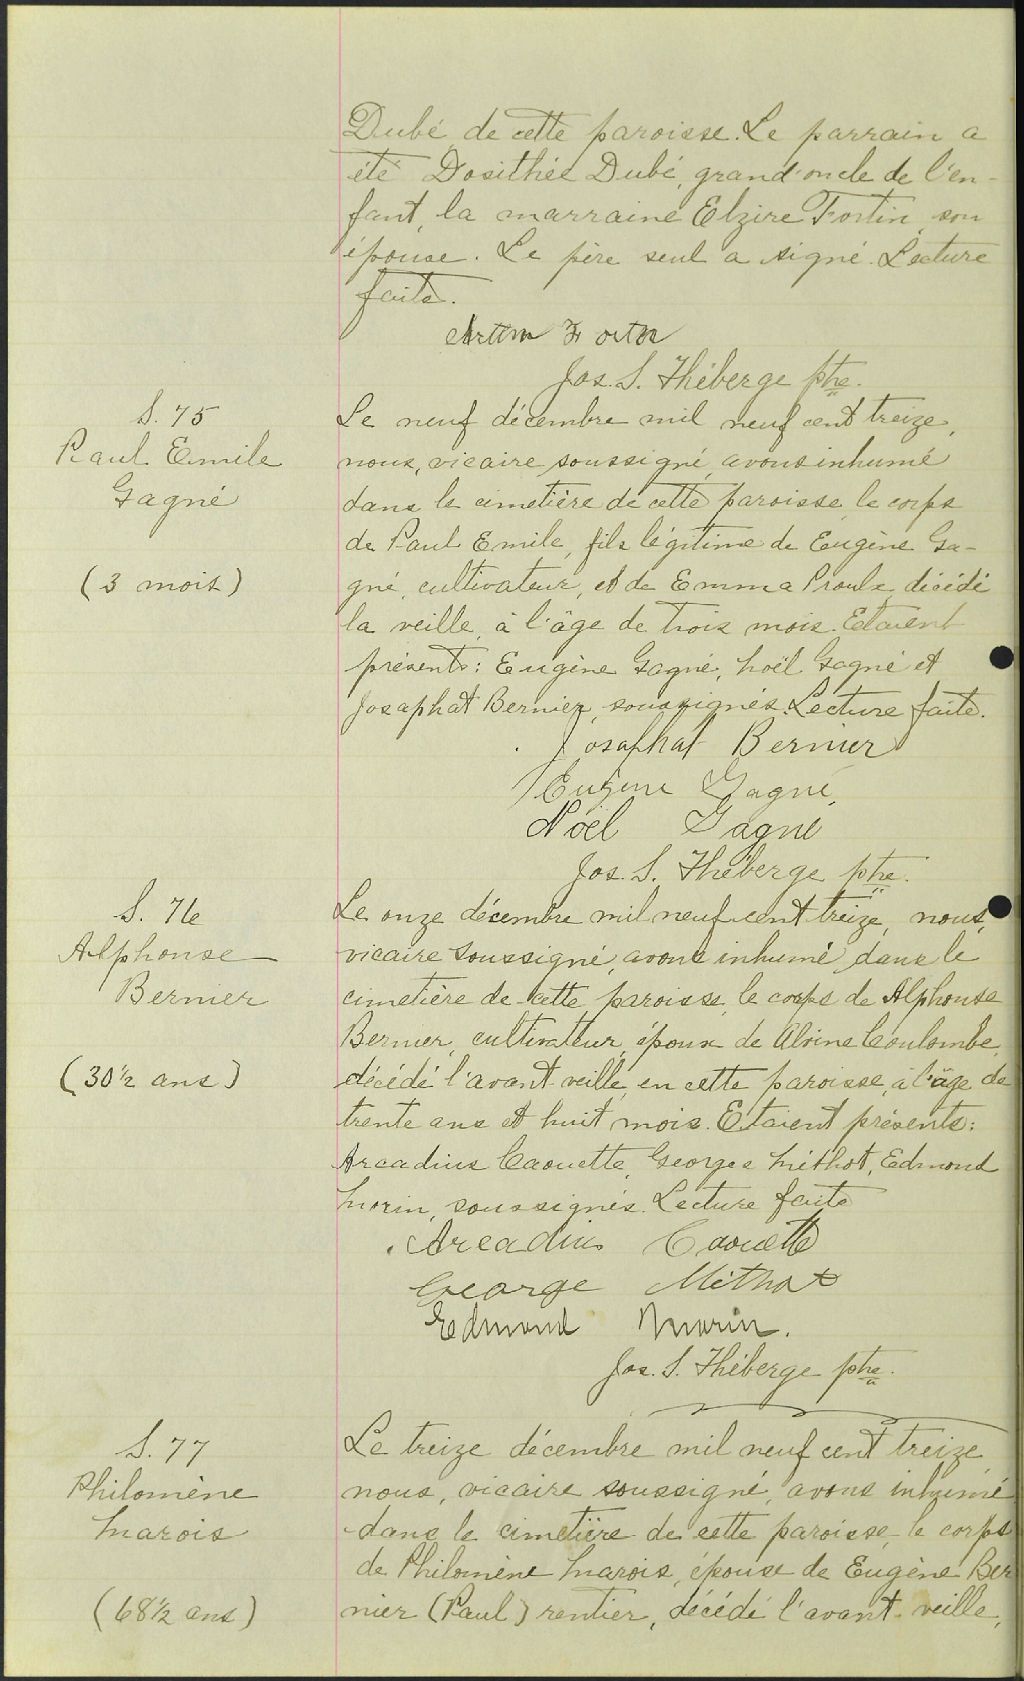 Dubé, de cette paroisse. Le parrain a
été Dosithée Dubé, grand'oncle de l'en-
fant, la marraine Elzire Fortin, son
épouse. Le père seul a signé. Lecture
faite.
Jos. S. Théberge ptre.
S. 75
Paul Emile
Gagné
(3 mois)
Le neuf décembre mil neuf cent treize,
nous, vicaire soussigné, avons inhumé
dans le cimetière de cette paroisse, le corps
de Paul Emile, fils légitime de Eugène Ga-
gné, cultivateur, et de Emma Proulx, décédé
la veille, à l'âge de trois mois. Etaient
présents: Eugène Gagné, Noël Gagné et
Josaphat Bernier, soussignés. Lecture faite.
Josaphat Bernier
Eugène Gagné,
Nöel Gagné
Jos. S. Théberge ptre.
S. 76
Alphonse
Bernier
(30 1/2 ans)
Le onze décembre mil neuf cent treize, nous,
vicaire soussigné, avons inhumé dans le
cimetière de cette paroisse, le corps de Alphonse
Bernier, cultivateur, époux de Alvine Coulombe,
décédé l'avant-veille, en cette paroisse, à l'âge de
trente ans et huit mois. Etaient présents:
Arcadius Caouette, Georges Méthot, Edmond
Morin, soussignés. Lecture faite
Arcadius Caouette
George Méthot
Edmond Morin.
Jos. S. Théberge ptre.
S. 77
Philomène
Marois
(68 1/2 ans)
Le treize décembre mil neuf cent treize,
nous, vicaire soussigné, avons inhumé
dans le cimetière de cette paroisse, le corps
de Philomène Marois, épouse de Eugène Ber
nier (Paul) rentier, décédé l'avant-veille,